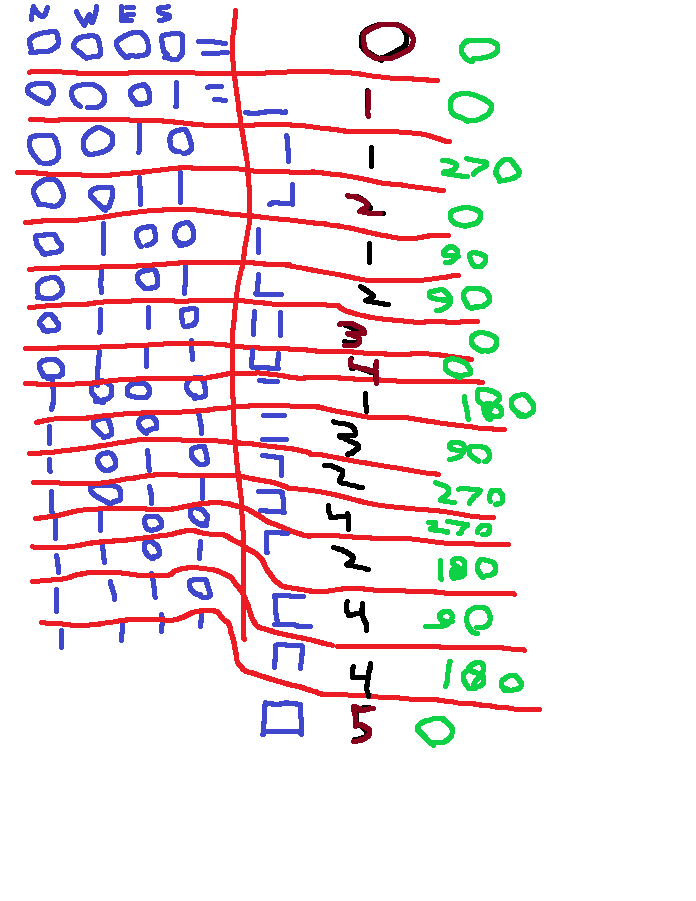 N W E S
0 0 0 0 = 0 0
0 0 0 1 = 1 0
0 0 1 0 1 270
0 0 1 1 2 0
0 1 0 0 1 90
0 1 0 1 2 90
0 1 1 0 3 0
0 1 1 1 0
1 0 0 0 1 180
1 0 0 1 90
1 0 1 0 2 270
1 0 1 1 270
1 1 0 0 2 180
1 1 0 1 4 90
1 1 1 0 4 180
1 1 1 1 5 0